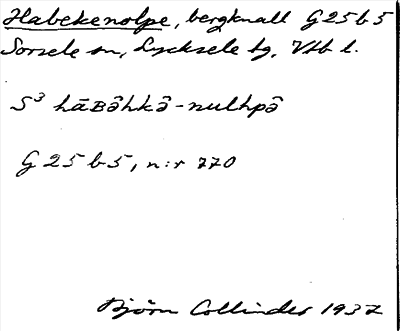 Habekenolpe, bergknall G 25 b 5
Sorsele sn, Lycksele tg, Vtb l.
S³ hāʙə̑hkə̑-nulhpə̑
G 25 b 5, n:r 770
Björn Collinder 1937